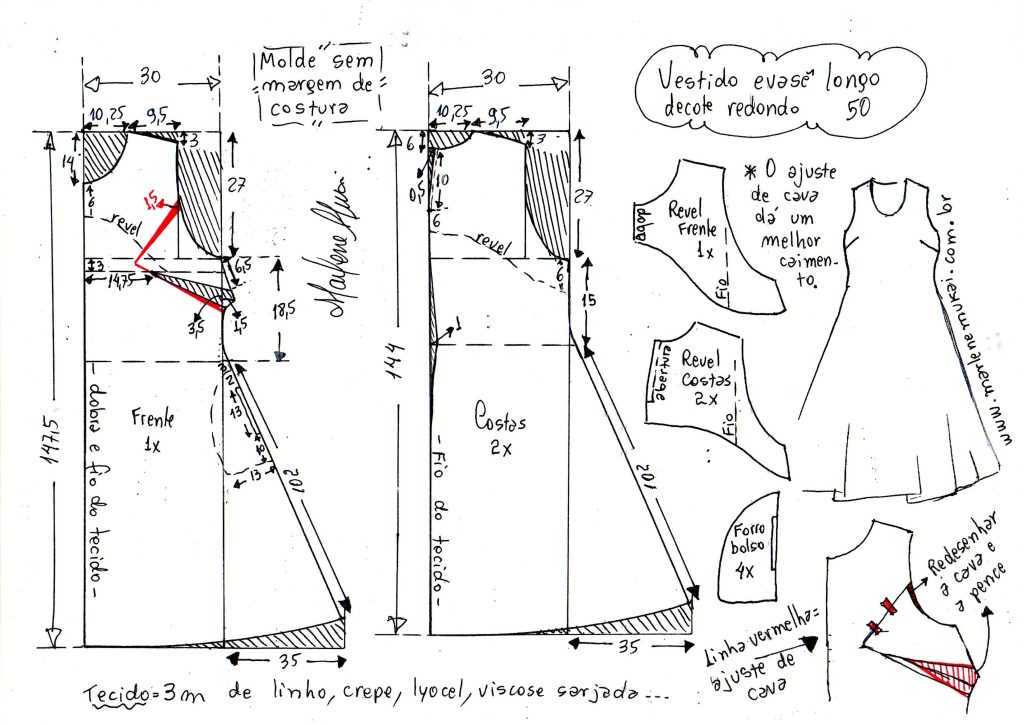 Molde sem
margem de
costura
Vestido evasê longo
decote redondo 50
30
10,25 9,5
3
14
6
27
1,5
revel
3
14,75
6,5
3,5
1,5
18,5
147,5
Frente
1x
- dobra e fio do tecido -
13
10
13
102
35
Marlene Mukai
30
10,25 9,5
6
3
0,5
10
6
27
revel
6
15
1
144
Costas
2x
- Fio do tecido -
101
35
dobra
Revel
Frente
1x
Fio
* O ajuste
de cava
dá um
melhor
caimen-
to.
abertura
Revel
Costas
2x
Fio
Forro
bolso
4x
www.marlenemukai.com.br
Linha vermelha=
ajuste de
cava
Redesenhar
a cava e
a pence
Tecido=3m de linho, crepe, lyocel, viscose sarjada...